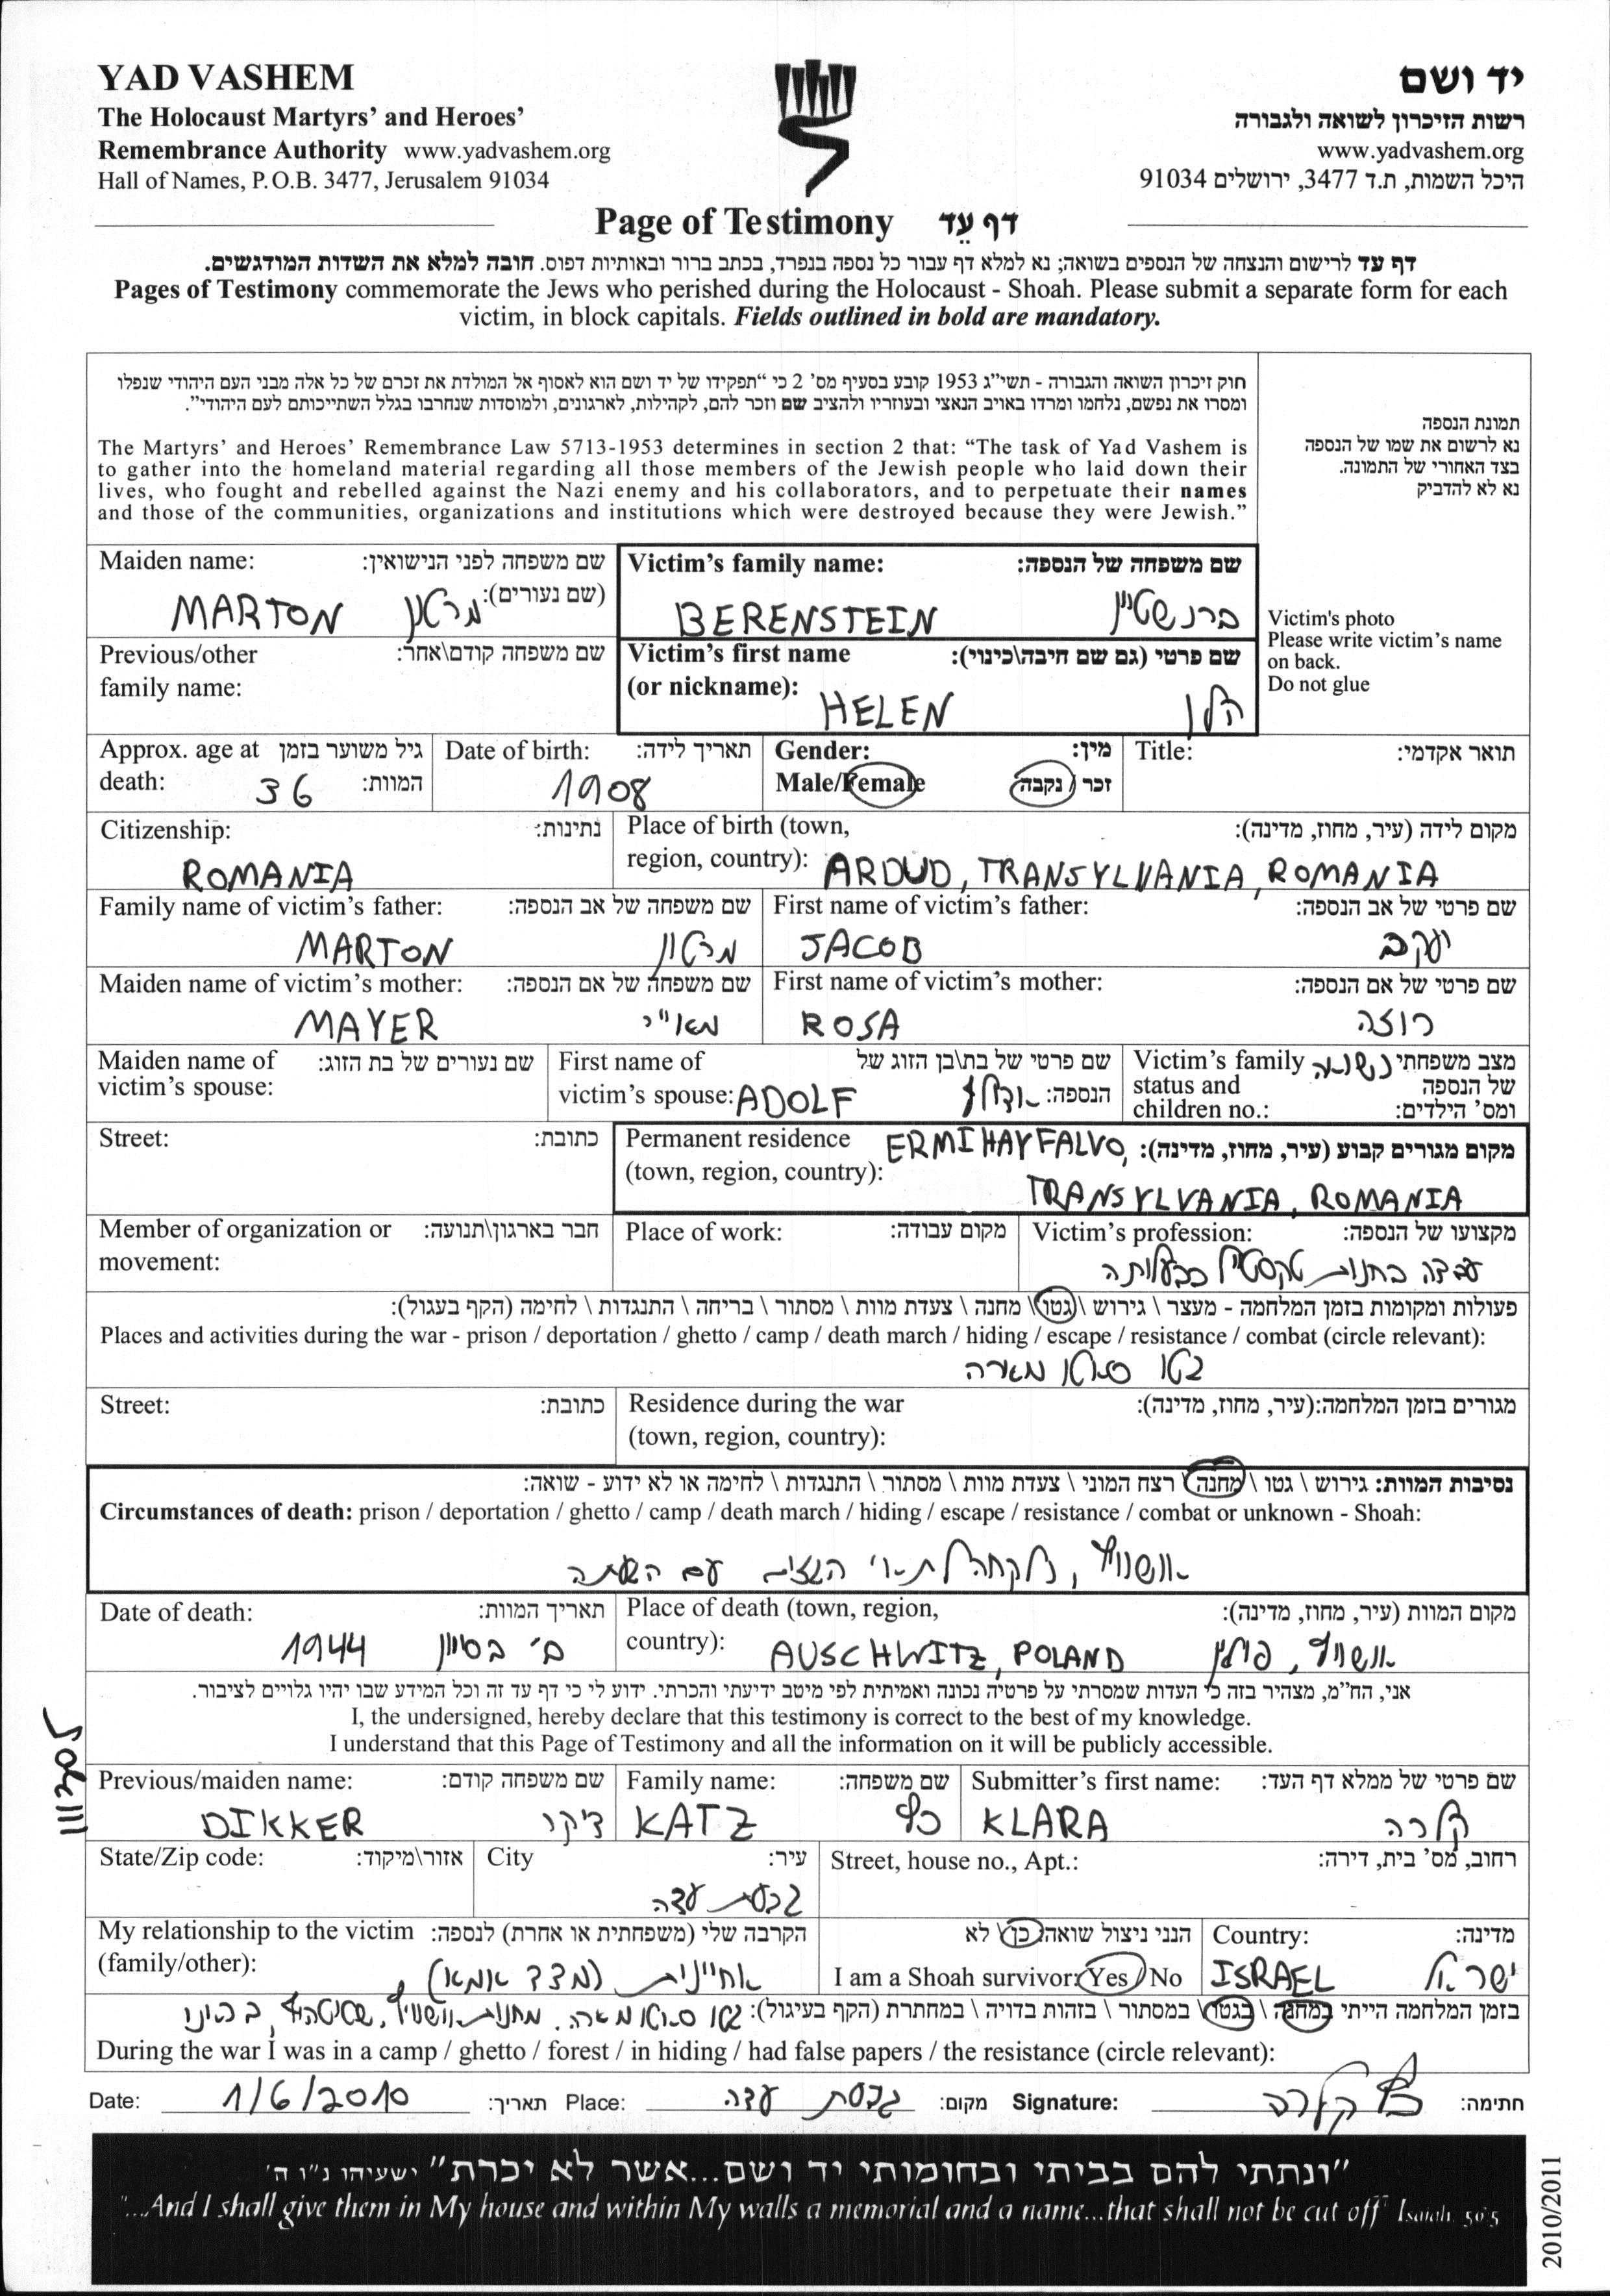 YAD VASHEM
The Holocaust Martyrs' and Heroes'
Remembrance Authority www.yadvashem.org
Hall of Names, P.O.B. 3477, Jerusalem 91034
יד ושם
רשות הזיכרון לשואה ולגבורה
www.yadvashem.org
היכל השמות, ת.ד 3477, ירושלים 91034
Page of Testimony דף עֵד
דף עד לרישום והנצחה של הנספים בשואה; נא למלא דף עבור כל נספה בנפרד, בכתב ברור ובאותיות דפוס. חובה למלא את השדות המודגשים.
Pages of Testimony commemorate the Jews who perished during the Holocaust - Shoah. Please submit a separate form for each
victim, in block capitals. Fields outlined in bold are mandatory.
חוק זיכרון השואה והגבורה - תשי"ג 1953 קובע בסעיף מס' 2 כי "תפקידו של יד ושם הוא לאסוף אל המולדת את זכרם של כל אלה מבני העם היהודי שנפלו
ומסרו את נפשם, נלחמו ומרדו באויב הנאצי ובעוזריו ולהציב שם וזכר להם, לקהילות, לארגונים, ולמוסדות שנחרבו בגלל השתייכותם לעם היהודי".
The Martyrs' and Heroes' Remembrance Law 5713-1953 determines in section 2 that: "The task of Yad Vashem is
to gather into the homeland material regarding all those members of the Jewish people who laid down their
lives, who fought and rebelled against the Nazi enemy and his collaborators, and to perpetuate their names
and those of the communities, organizations and institutions which were destroyed because they were Jewish."
תמונת הנספה
נא לרשום את שמו של הנספה
בצד האחורי של התמונה.
נא לא להדביק
Victim's photo
Please write victim's name
on back.
Do not glue
Maiden name: שם משפחה לפני הנישואין:
(שם נעורים):
MARTON מרטון
Victim's family name: שם משפחה של הנספה:
BERENSTEIN ברנשטיין
Previous/other שם משפחה קודם\אחר:
family name:
Victim's first name שם פרטי (גם שם חיבה\כינוי):
(or nickname): HELEN הלן
Approx. age at גיל משוער בזמן
death: 36 המוות:
Date of birth: תאריך לידה:
1908
Gender: מין:
Male/Female זכר / נקבה
Title: תואר אקדמי:
Citizenship: נתינות:
ROMANIA
Place of birth (town, מקום לידה (עיר, מחוז, מדינה):
region, country): ARDUD, TRANSYLVANIA, ROMANIA
Family name of victim's father: שם משפחה של אב הנספה:
MARTON מרטון
First name of victim's father: שם פרטי של אב הנספה:
JACOB יעקב
Maiden name of victim's mother: שם משפחה של אם הנספה:
MAYER מאייר
First name of victim's mother: שם פרטי של אם הנספה:
ROSA רוזה
Maiden name of שם נעורים של בת הזוג:
victim's spouse:
First name of שם פרטי של בת\בן הזוג של
victim's spouse: ADOLF אדולף הנספה:
Victim's family נשואה מצב משפחתי
status and של הנספה
children no.: ומס' הילדים:
Street: כתובת:
Permanent residence ERMIHAYFALVO, מקום מגורים קבוע (עיר, מחוז, מדינה):
(town, region, country): TRANSYLVANIA, ROMANIA
Member of organization or חבר בארגון\תנועה:
movement:
Place of work: מקום עבודה:
Victim's profession: מקצועו של הנספה:
עבדה בחנות טקסטיל בבעלותה
פעולות ומקומות בזמן המלחמה - מעצר \ גירוש \ גטו \ מחנה \ צעדת מוות \ מסתור \ בריחה \ התנגדות \ לחימה (הקף בעגול):
Places and activities during the war - prison / deportation / ghetto / camp / death march / hiding / escape / resistance / combat (circle relevant):
גטו סאטו מארה
Street: כתובת:
Residence during the war מגורים בזמן המלחמה:(עיר, מחוז, מדינה):
(town, region, country):
נסיבות המוות: גירוש \ גטו \ מחנה \ רצח המוני \ צעדת מוות \ מסתור \ התנגדות \ לחימה או לא ידוע - שואה:
Circumstances of death: prison / deportation / ghetto / camp / death march / hiding / escape / resistance / combat or unknown - Shoah:
אושוויץ, נלקחה לתאי הגזים עם
Date of death: תאריך המוות:
1944 ב' בסיוון
Place of death (town, region, מקום המוות (עיר, מחוז, מדינה):
country): AUSCHWITZ, POLAND אושוויץ, פולין
אני, הח"מ, מצהיר בזה כי העדות שמסרתי על פרטיה נכונה ואמיתית לפי מיטב ידיעתי והכרתי. ידוע לי כי דף עד זה וכל המידע שבו יהיו גלויים לציבור.
I, the undersigned, hereby declare that this testimony is correct to the best of my knowledge.
I understand that this Page of Testimony and all the information on it will be publicly accessible.
Previous/maiden name: שם משפחה קודם:
DIKKER דיקר
Family name: שם משפחה:
KATZ כץ
Submitter's first name: שם פרטי של ממלא דף העד:
KLARA קלרה
State/Zip code: אזור\מיקוד:
City עיר:
גבעת עדה
Street, house no., Apt.: רחוב, מס' בית, דירה:
My relationship to the victim הקרבה שלי (משפחתית או אחרת) לנספה:
(family/other): אחיינית (מצד אמא)
הנני ניצול שואה כן\ לא
I am a Shoah survivor: Yes / No
Country: מדינה:
ISRAEL ישראל
בזמן המלחמה הייתי במחנה \ בגטו \ במסתור \ בזהות בדויה \ במחתרת (הקף בעיגול): גטו סאטו מארה. מחנות אושוויץ,
During the war I was in a camp / ghetto / forest / in hiding / had false papers / the resistance (circle relevant):
Date: 1/6/2010 תאריך: Place: גבעת עדה מקום: Signature: כץ קלרה חתימה:
"ונתתי להם בביתי ובחומותי יד ושם...אשר לא יכרת" ישעיהו נ"ו ה'
"...And I shall give them in My house and within My walls a memorial and a name...that shall not be cut off" Isaiah, 56:5
2010/2011